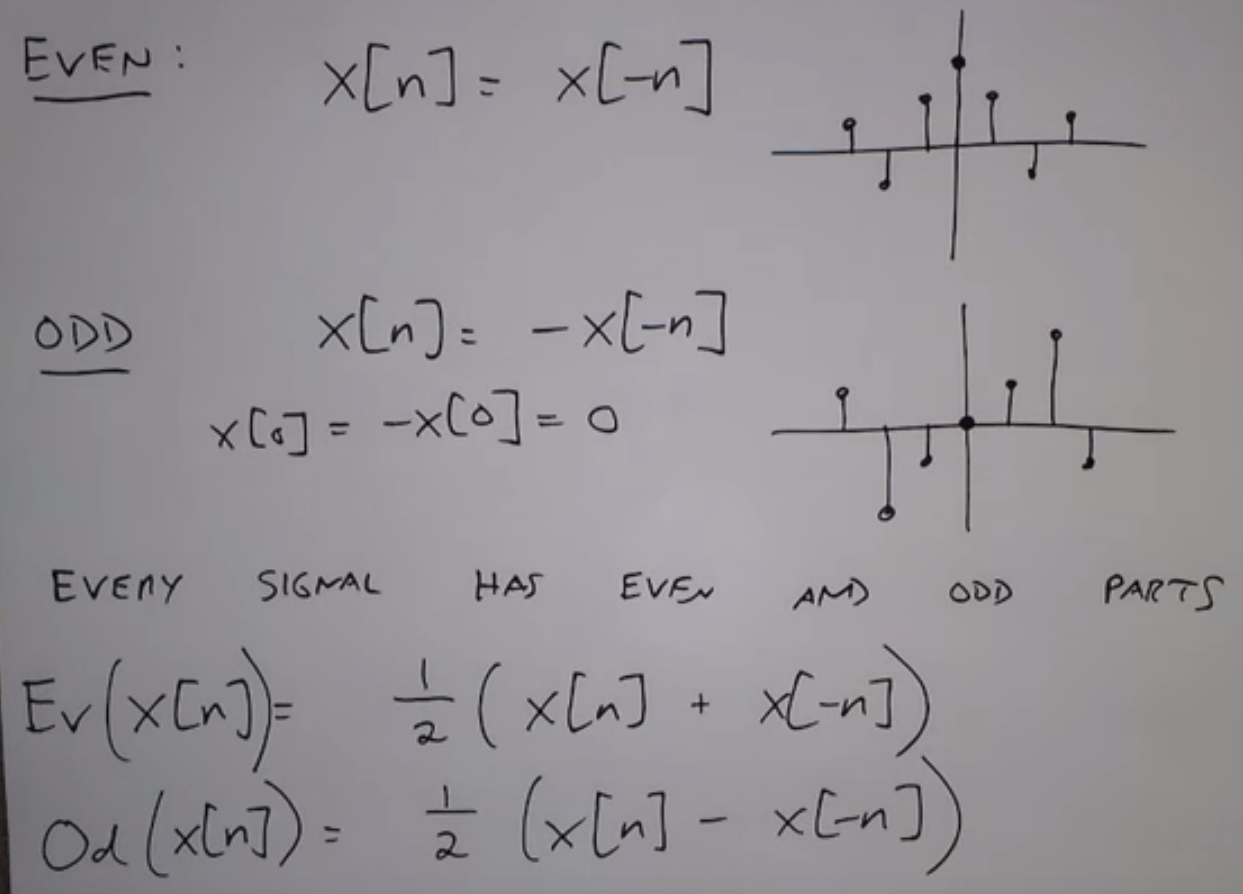 EVEN: x[n] = x[-n]
ODD x[n] = -x[-n]
x[0] = -x[0] = 0
EVERY SIGNAL HAS EVEN AND ODD PARTS
Ev(x[n]) = 1/2 (x[n] + x[-n])
Od(x[n]) = 1/2 (x[n] - x[-n])